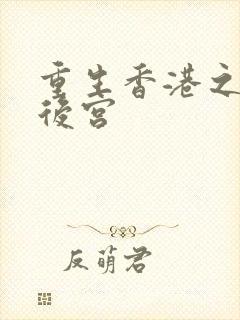 重生香港之
後宮
反萌君